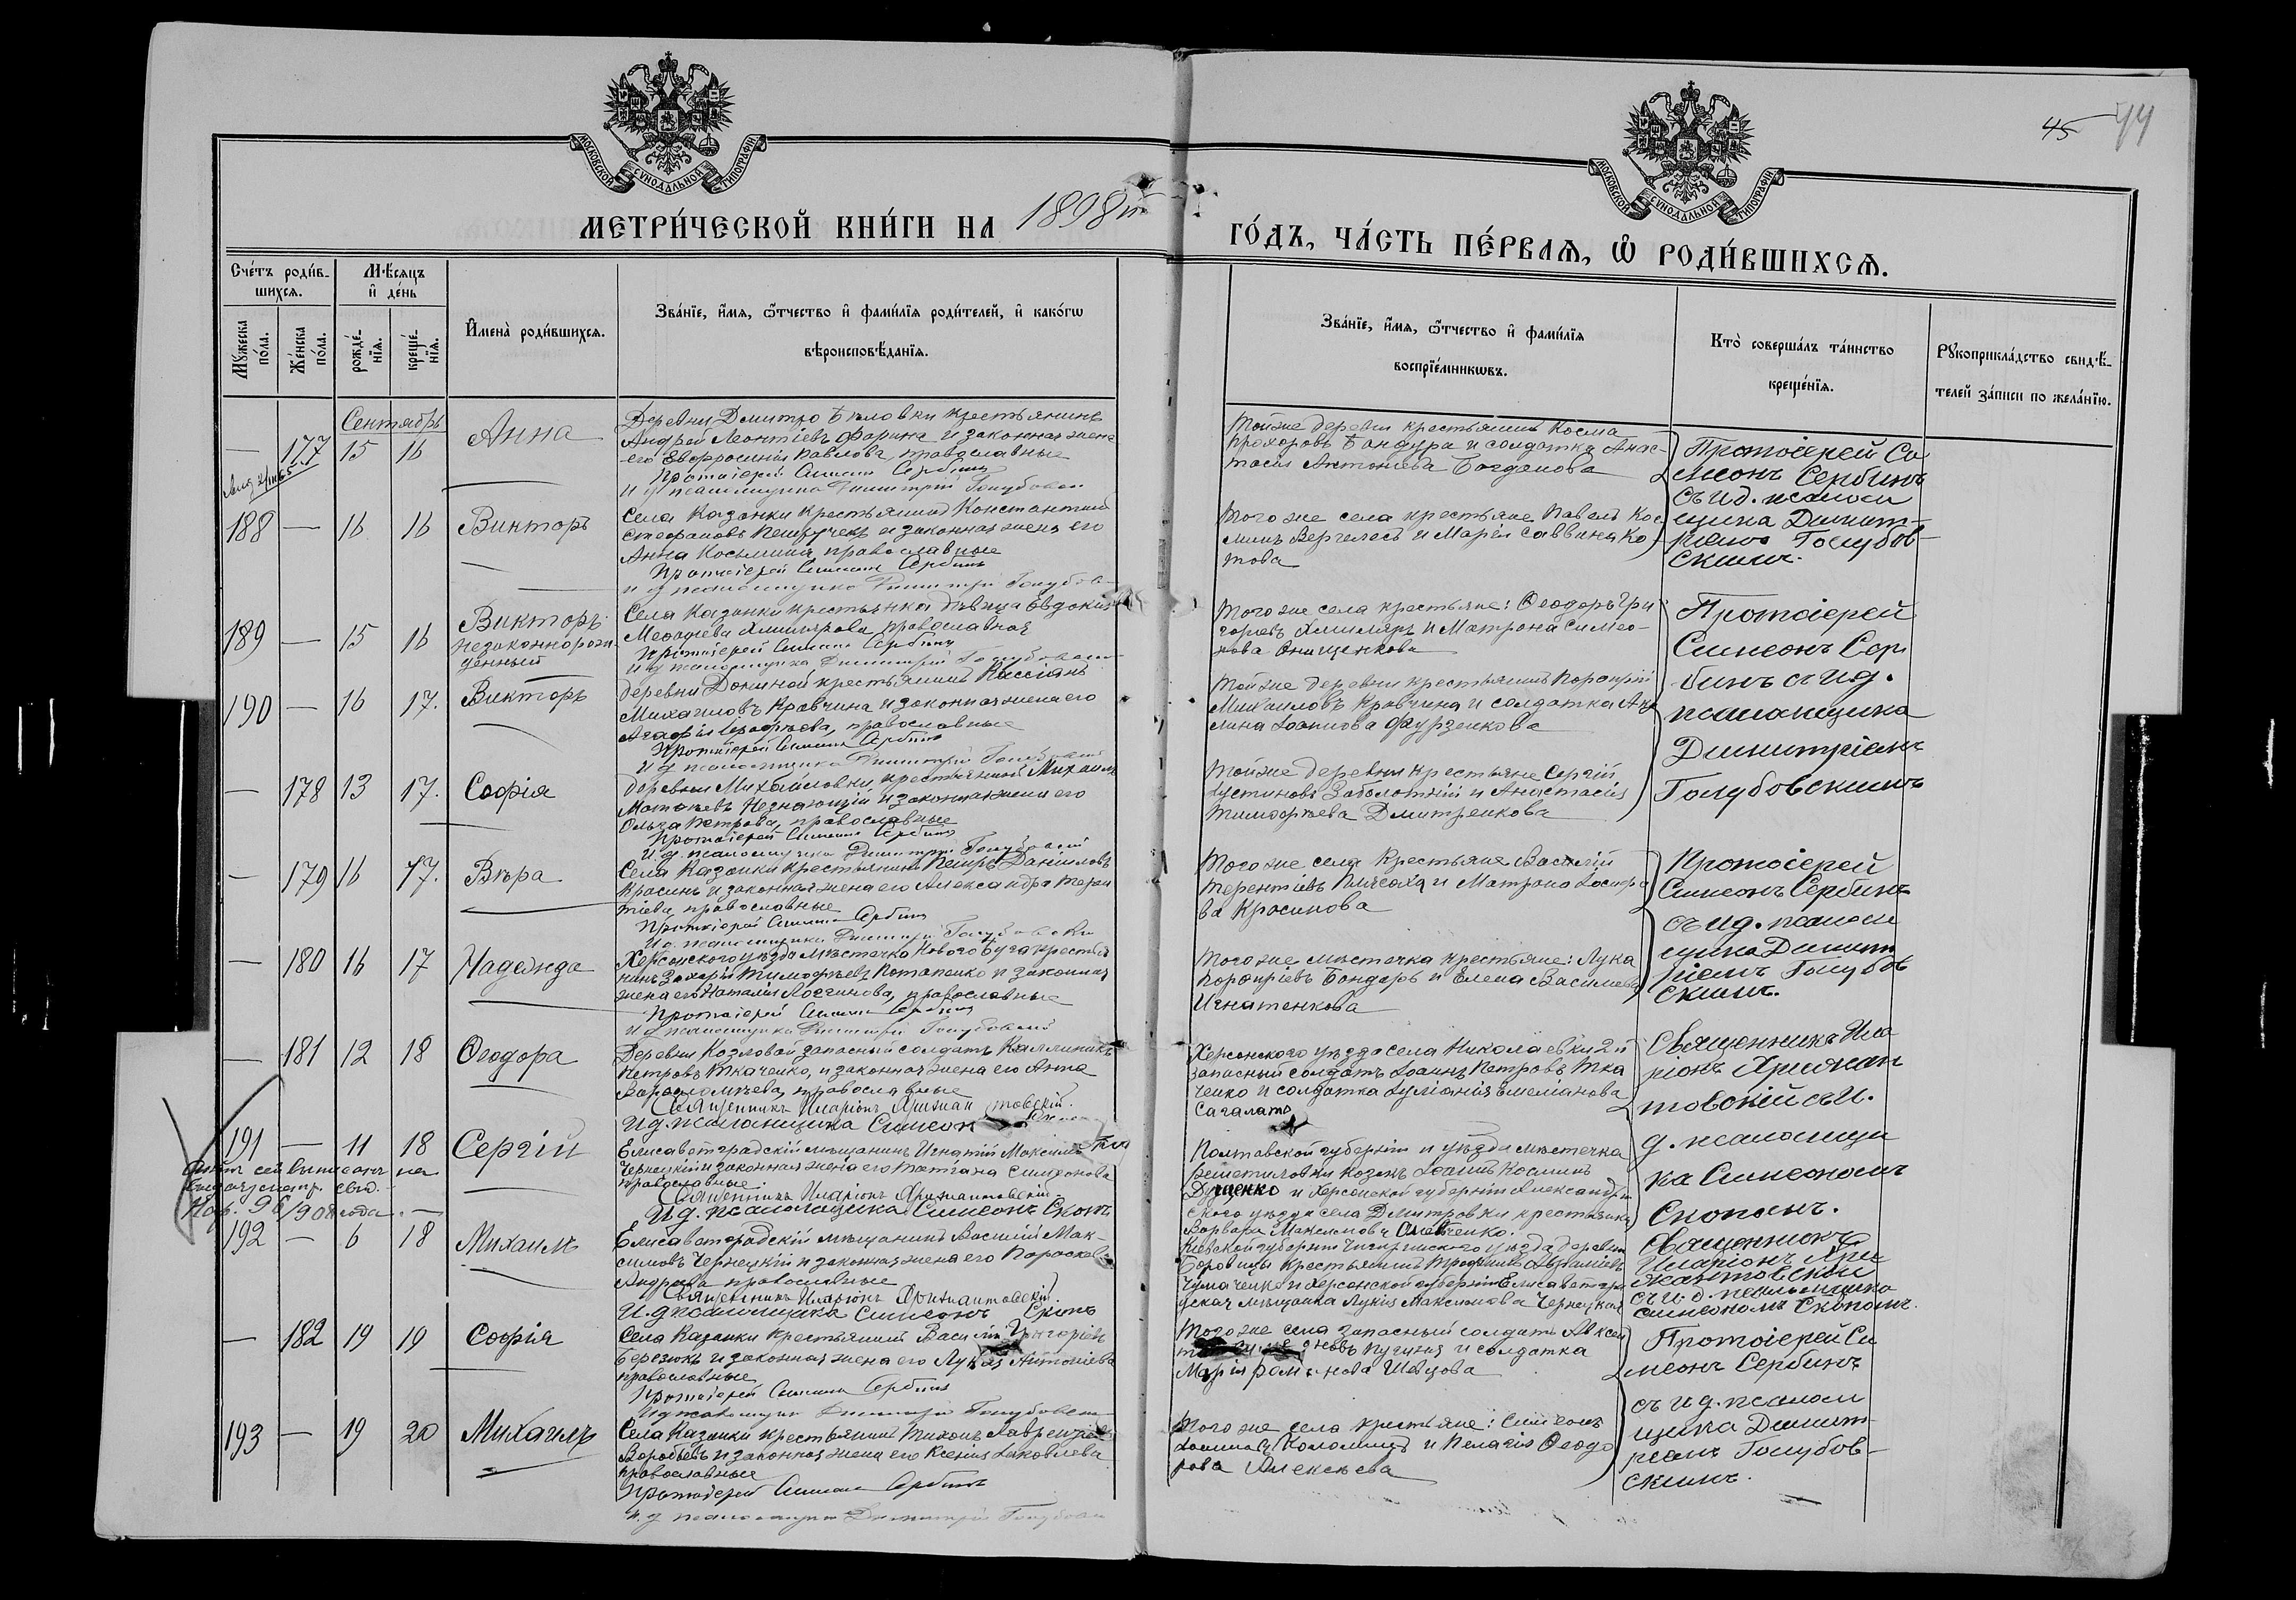 45 44
МОСКОВСКОЙ СУНОДАЛЬНОЙ ТИПОГРАФІИ
МОСКОВСКОЙ СУНОДАЛЬНОЙ ТИПОГРАФІИ
МЕТРИ́ЧЕСКОЙ КНИ́ГИ НА 1898й
ГО́ДЪ, ЧА́СТЬ ПЕ́РВАѦ, Ѽ РОДИ́ВШИХСѦ.
Сче́тъ роди́в-
шихсѧ.
Мꙋ́жеска по́ла.
Же́нска по́ла.
Мѣ́сѧцъ
и҆ де́нь
рожде́-
нїѧ.
креще́-
нїѧ.
И҆мена̀ роди́вшихсѧ.
Зва́нїе, и҆́мѧ, ѻ҆́тчество и҆ фами́лїѧ роди́телей, и҆ како́гѡ
вѣроисповѣ́данїѧ.
Зва́нїе, и҆́мѧ, ѻ҆́тчество и҆ фами́лїѧ
воспрїе́мникѡвъ.
Кто̀ соверша́лъ та́инство
креще́нїѧ.
Рꙋкоприкла́дство свидѣ́-
телей за́писи по жела́нїю.
Сентябрь
— 177 15 16 Анна
Деревни Дмитро Бѣловки крестьянинъ
Андрей Леонтіевъ Фарина и законная жена
его Евфросинія Павлова, православные
Протоіерей Симеонъ Сербинъ
И д псаломщика Димитрій Голубовскій
Тойже деревни крестьянинъ Косма
Прохоровъ Бандура и солдатка Анас-
тасія Антоніева Богданова
Протоіерей Си
меонъ Сербинъ
съ и д. псалом
щика Димит-
ріемъ Голубов-
скимъ.
188 — 16 16 Викторъ
Села Казанки крестьянинъ Константинъ
Стефановъ и законная жена его
Анна Косьмина, православные
Протоіерей Симеонъ Сербинъ
и д псаломщика Димитрій Голубов
Того же села крестьяне Павелъ Кос
минъ Вергелесъ и Марія Саввина Ко-
това
189 — 15 16 Викторъ
незаконнорож
денный
Села Казанки крестьянка дѣвица Евдокія
Меѳодіева православная
Протоіерей Симеонъ Сербинъ
И д псаломщика Димитрій Голубовскій
Того же села крестьяне: Ѳеодоръ Гри
горьевъ и Матрона Симео-
нова Онищенкова
Протоіерей
Симеонъ Сер
бинъ съ и д.
псаломщика
Димитріемъ
Голубовскимъ
190 — 16 17. Викторъ
деревни Дониной крестьянинъ Кассіанъ
Михаиловъ Кравчина и законная жена его
Агафія православные
Протоіерей Симеонъ Сербинъ
И д псаломщика Димитрій Голубовскій
Тойже деревни крестьянинъ Порфирій
Михаиловъ Кравчина и солдатка Аки
лина Іоаннова Фурзенкова
— 178 13 17. Софія
деревни Михайловки, крестьянинъ Михаилъ
Матѳѣевъ Незнающій и законная жена его
Ольга Петрова, православные
Протоіерей Симеонъ Сербинъ
И. д. псаломщика Димитрій Голубовскій
Тойже деревни крестьяне Сергій
Іустиновъ Заболотній и Анастасія
Тимофѣева Дмитренкова
— 179 16 17. Вѣра
Села Казанки крестьянинъ Петръ Даниловъ
Красинъ и законная жена его Александра Терен
тіева, православные
Протоіерей Симеонъ Сербинъ
И д. псаломщика Димитрій Голубовскій
Того же села крестьяне Василій
Терентіевъ и Матрона Іосифо
ва Красинова
Протоіерей
Симеонъ Сербинъ
съ и д. псалом
щика Димит
ріемъ Голубов
скимъ.
— 180 16 17 Надежда
Херсонского уѣзда мѣстечка Нового Буга крестья
нинъ Захарій Тимофѣевъ Потапенко и законная
жена его Наталія Логгинова, православные
Протоіерей Симеонъ Сербинъ
И д псаломщика Димитрій Голубовскій
Того же мѣстечка крестьяне: Лука
Порфиріевъ Бондарь и Елена Васильева
Игнатенкова
— 181 12 18 Ѳеодора
Деревни Козловой запасный солдатъ Каллиникъ
Петровъ Ткаченко, и законная жена его Анна
Варѳоломѣева, православные
Священникъ Иларіонъ Хрижантовскій.
И д. псаломщика Симеонъ
Херсонского уѣзда села Николаевки 2й
запасный солдатъ Іоаннъ Петровъ Тка
ченко и солдатка Іуліанія Емеліанова
Сагалата
Священникъ Ила
ріонъ Хрижан
товскій съ И.
д. псаломщи
ка Симеономъ
Скопомъ.
191 — 11 18 Сергій
Елисаветградскій мѣщанинъ Игнатій Максимовъ
Чернецкій и законная жена его Татіана Симеонова
православные.
Священникъ Иларіонъ Хрижантовскій
И д. псаломщика Симеонъ Скопъ
Полтавской губерніи и уѣзда мѣстечка
Решетиловки козакъ Іоаннъ Косминъ
и Херсонской губерніи Александрій
ского уѣзда села Дмитровки крестьянка
Варвара Максимова
192 — 6 18 Михаилъ
Елисаветградскій мѣщанинъ Василій Мак-
симовъ Чернецкій и законная жена его Параскева
Андреева православные
Священникъ Иларіонъ Хрижантовскій.
И. д псаломщика Симеонъ Скопъ
Кіевской губерніи Чигиринского уѣзда деревни
Боровицы крестьянинъ
и Херсонской губерніи Елисаветгра
дская мѣщанка Лукія Максимова Чернецкая
Священникъ
Иларіонъ Хри
жантовскій
съ и. д. псаломщика
Симеономъ Скопомъ.
— 182 19 19 Софія
Села Казанки крестьянинъ Василій Григоріевъ
Березюкъ и законная жена его Лукія Антоніева
православные
Протоіерей Симеонъ Сербинъ
И д псаломщика Димитрій Голубовскій
Того же села запасный солдатъ Авксен
и солдатка
Марія Романова Шевцова
Протоіерей Си
меонъ Сербинъ
съ и д. псалом
щика Димит-
ріемъ Голубов-
скимъ.
193 — 19 20 Михаилъ
Села Казанки крестьянинъ Тихонъ Лаврентіевъ
Воробьевъ и законная жена его Ксенія Іаковлева
православные
Протоіерей Симеонъ Сербинъ
И. д псаломщика Димитрій Голубовскій
Того же села крестьяне: Симеонъ
Іоанновъ Коломіецъ и Пелагія Ѳеодо
рова Алексѣева